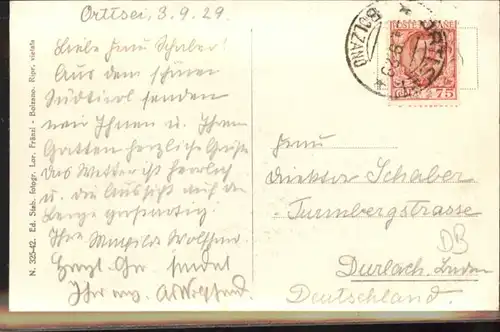 Ortisei, 3.9.29.
Liebe Frau Schaber!
Aus dem schönen
Südtirol senden
wir Ihnen u. Ihrem
Gatten herzliche Grüße
das Wetter ist herrlich
u. die Aussicht auf die
Berge großartig.
Ihre
Herzl. sendet
Ihr
Frau
Direktor Schaber
Turmbergstrasse
Durlach. Baden
Deutschland.
DB
POSTE ITALIANE
CENT. 75
BOLZANO
N. 325-42. Ed. Stab. fotogr. Lor. Fränzl - Bolzano. Ripr. vietata